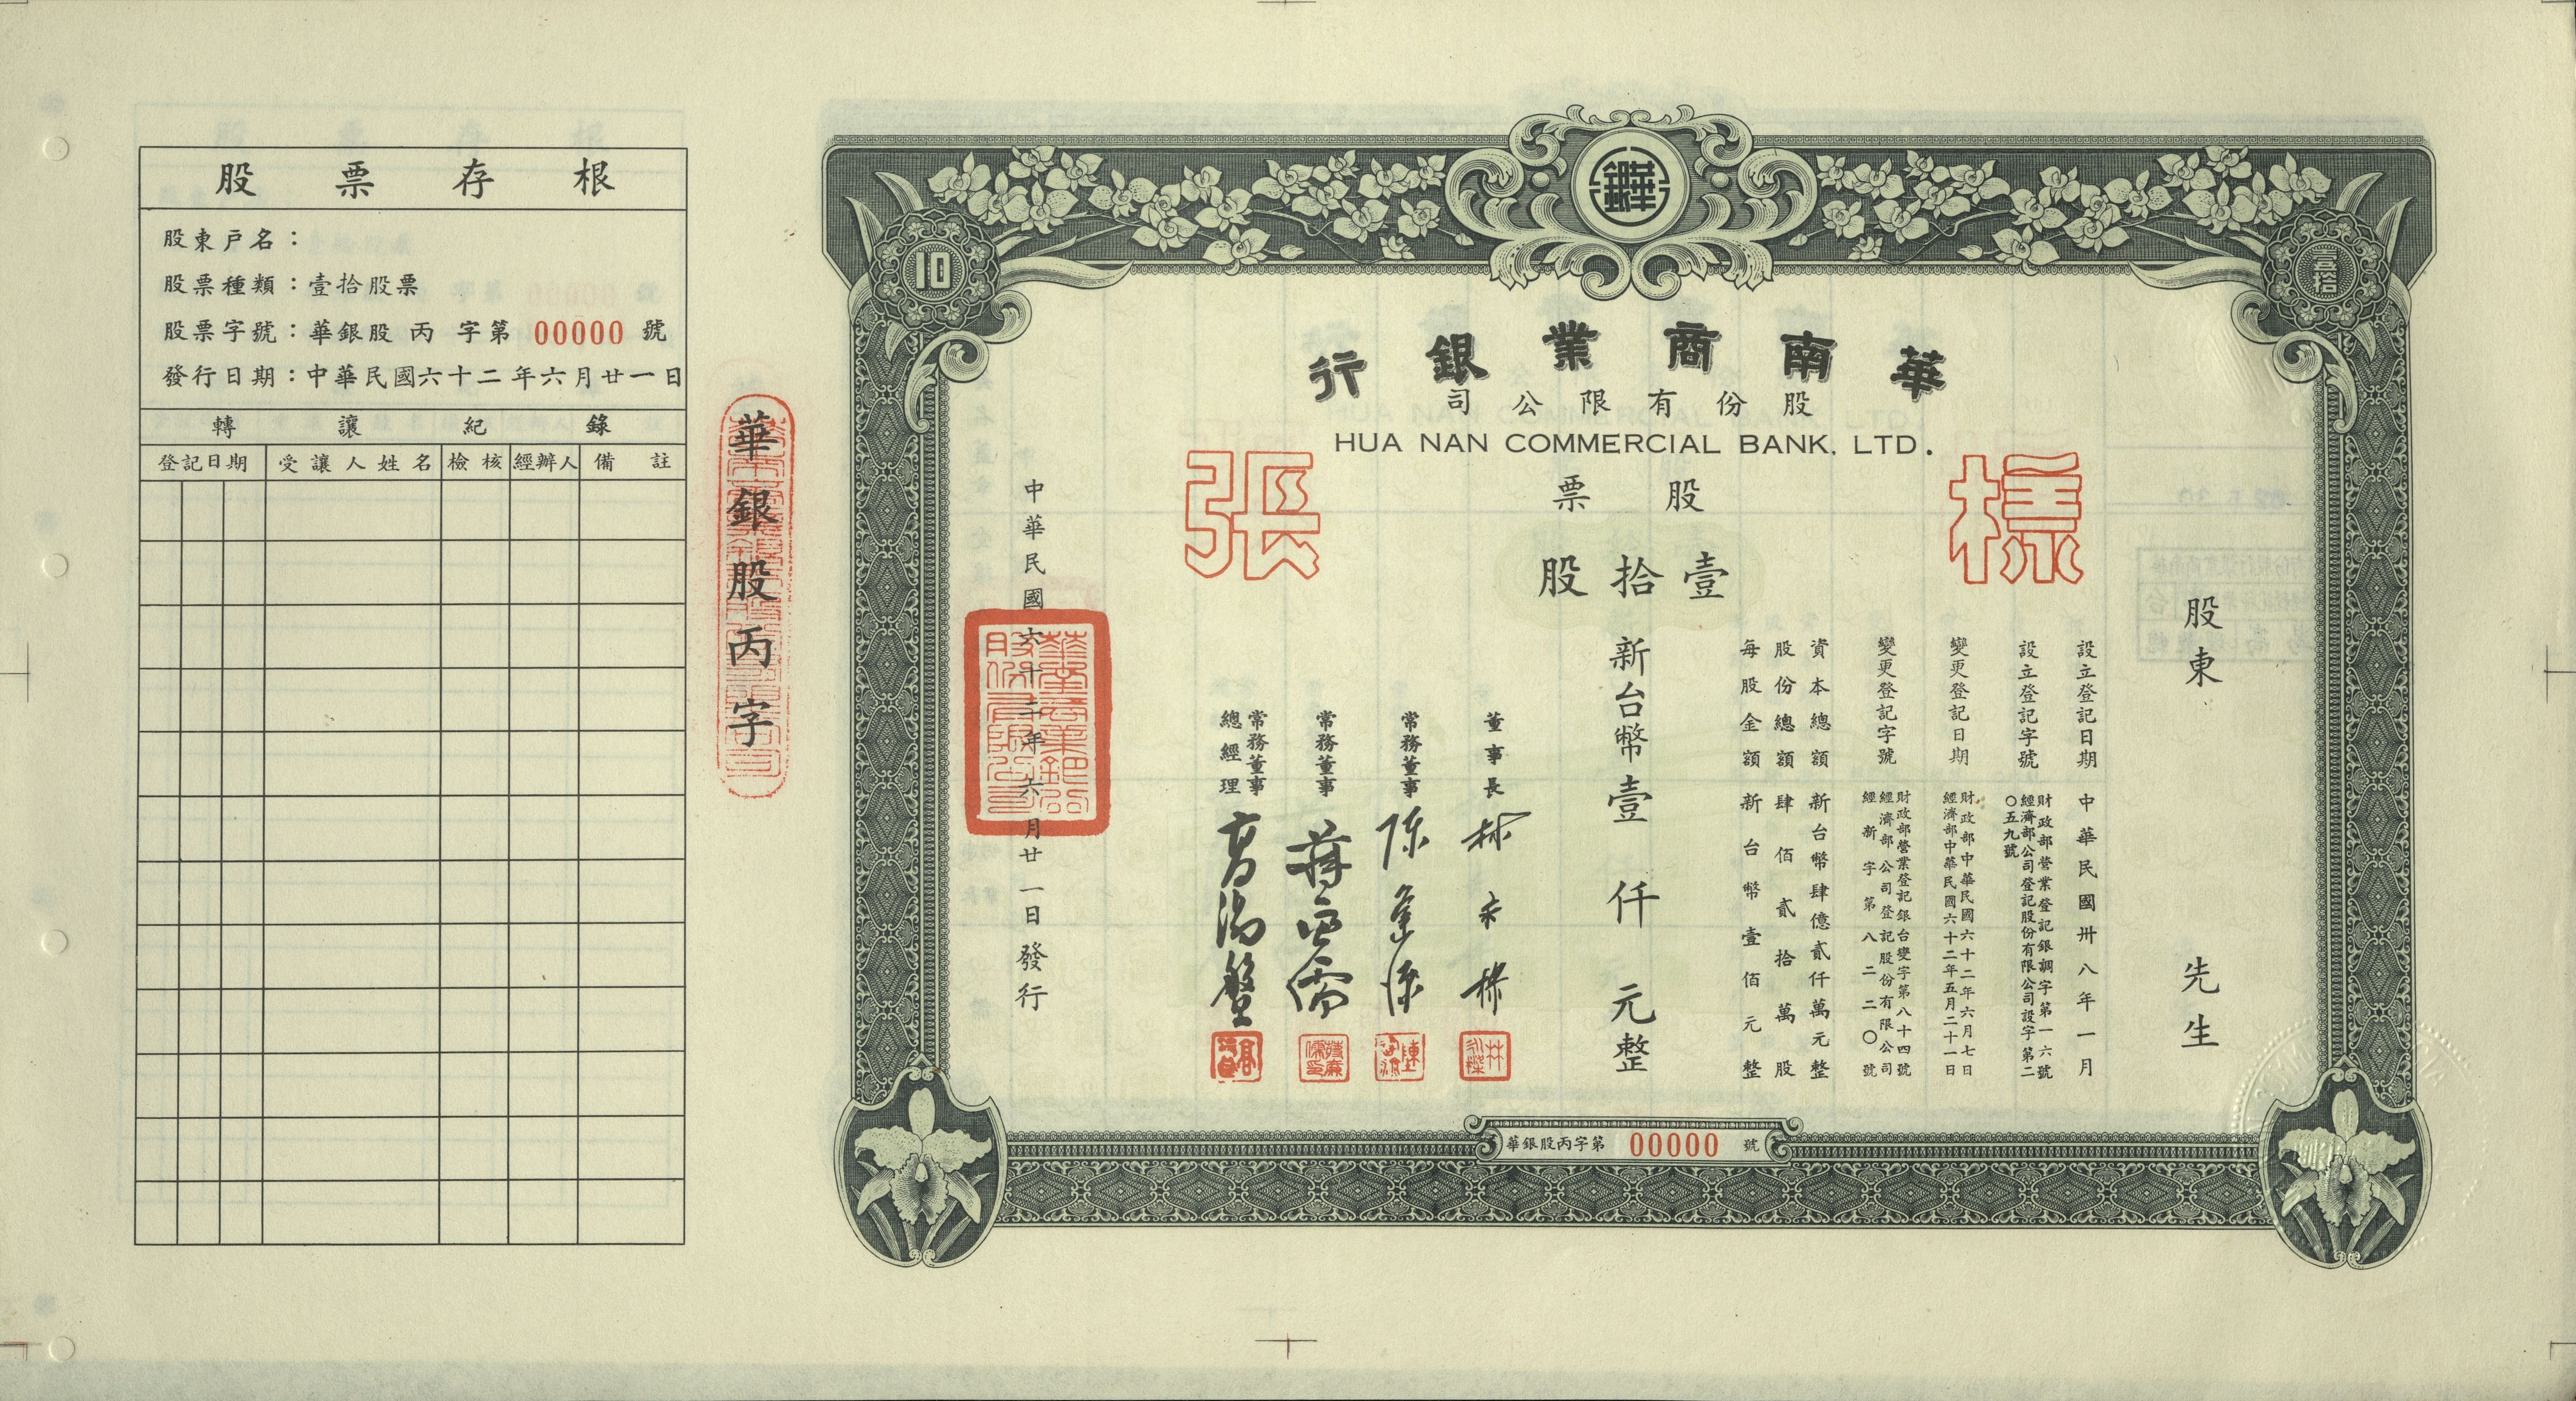 股票存根
股東戶名：
股票種類：壹拾股票
股票字號：華銀股 丙 字第 00000 號
發行日期：中華民國六十二年六月廿一日
轉讓紀錄
登記日期 受讓人姓名 檢核 經辦人 備註
華銀股丙字
華銀
10
壹拾
華南商業銀行
股份有限公司
HUA NAN COMMERCIAL BANK, LTD.
樣張
股票
壹拾股
股東 先生
設立登記日期 中華民國卅八年一月
設立登記字號 財政部營業登記銀調字第一六號
經濟部公司登記股份有限公司設字第二
〇五九號
變更登記日期 財政部中華民國六十二年六月七日
經濟部中華民國六十二年五月二十一日
變更登記字號 財政部營業登記銀台變字第八十四號
經濟部公司登記股份有限公司
經新字第八二二〇號
資本總額 新台幣肆億貳仟萬元整
股份總額 肆佰貳拾萬股
每股金額 新台幣壹佰元整
新台幣壹仟元整
董事長
常務董事
常務董事
常務董事
總經理
中華民國六十二年六月廿一日發行
華銀股丙字第 00000 號